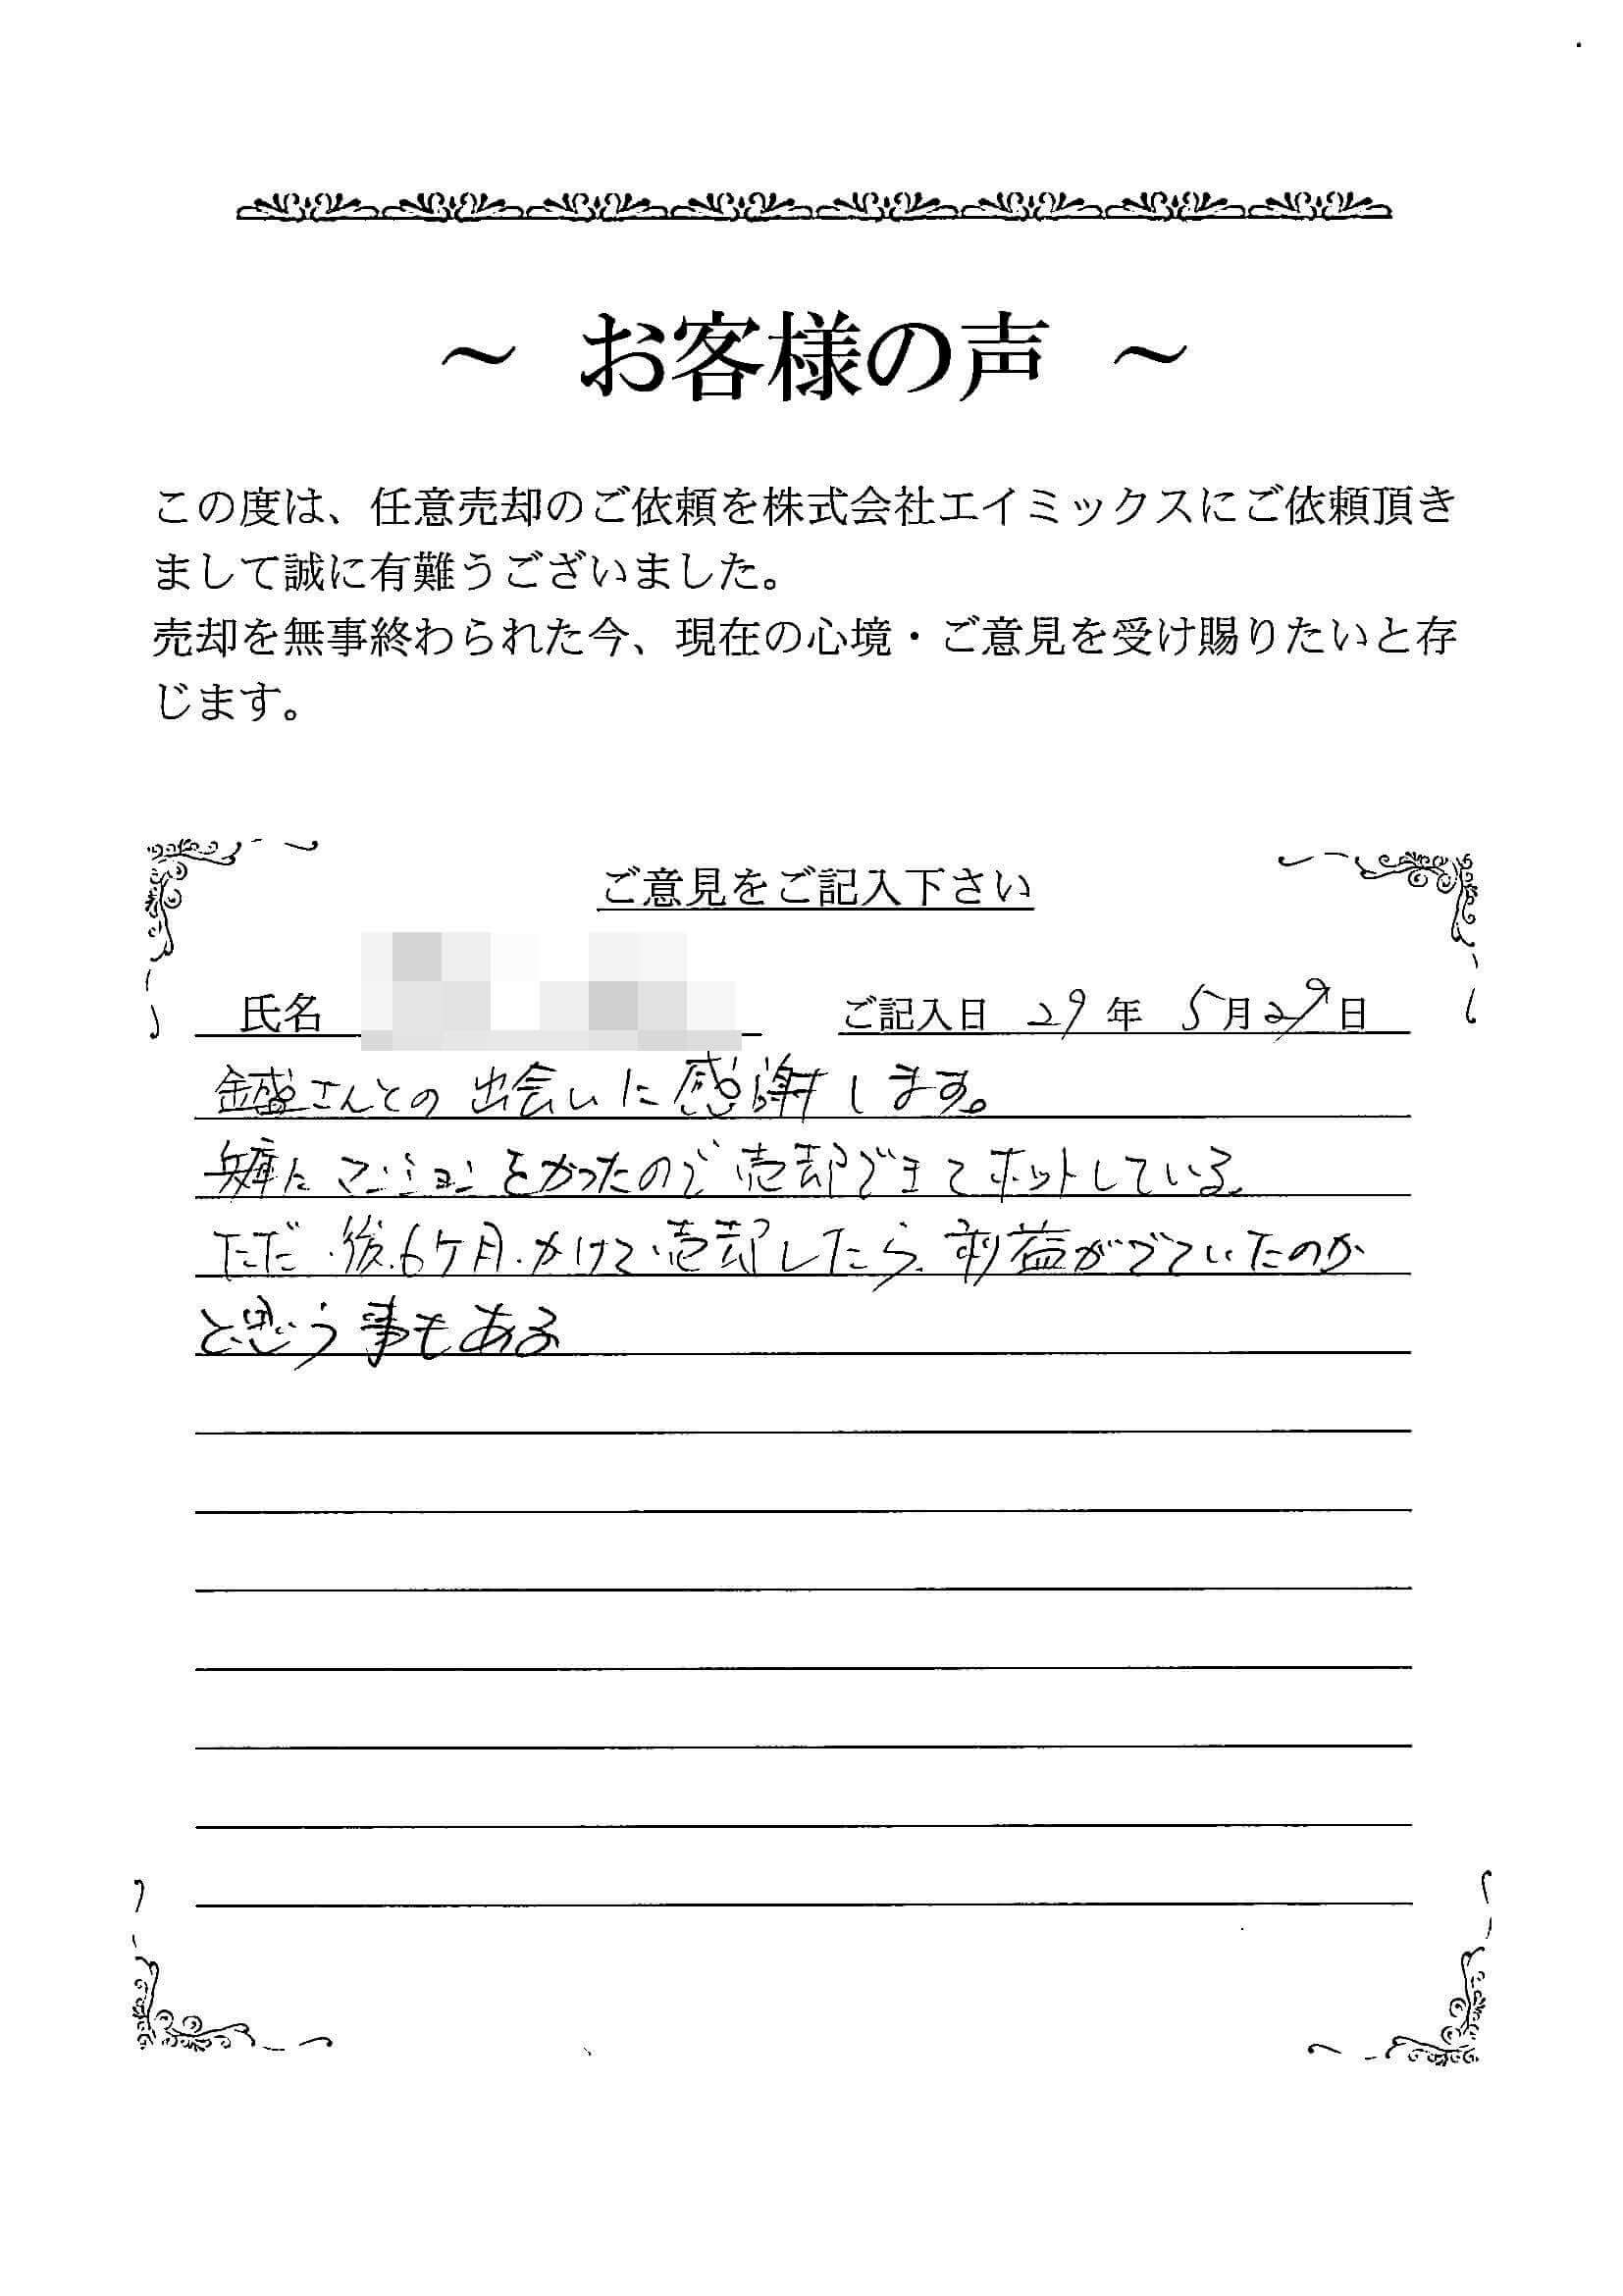 ～ お客様の声 ～
この度は、任意売却のご依頼を株式会社エイミックスにご依頼頂き
まして誠に有難うございました。
売却を無事終わられた今、現在の心境・ご意見を受け賜りたいと存
じます。
ご意見をご記入下さい
氏名 ご記入日 29 年 5月29日
金盛さんとの出会いに感謝します。
兵庫にマンションをかったので売却できてホットしている。
ただ、後、6ケ月、かけて売却したら、利益がでていたのか
と思う事もある